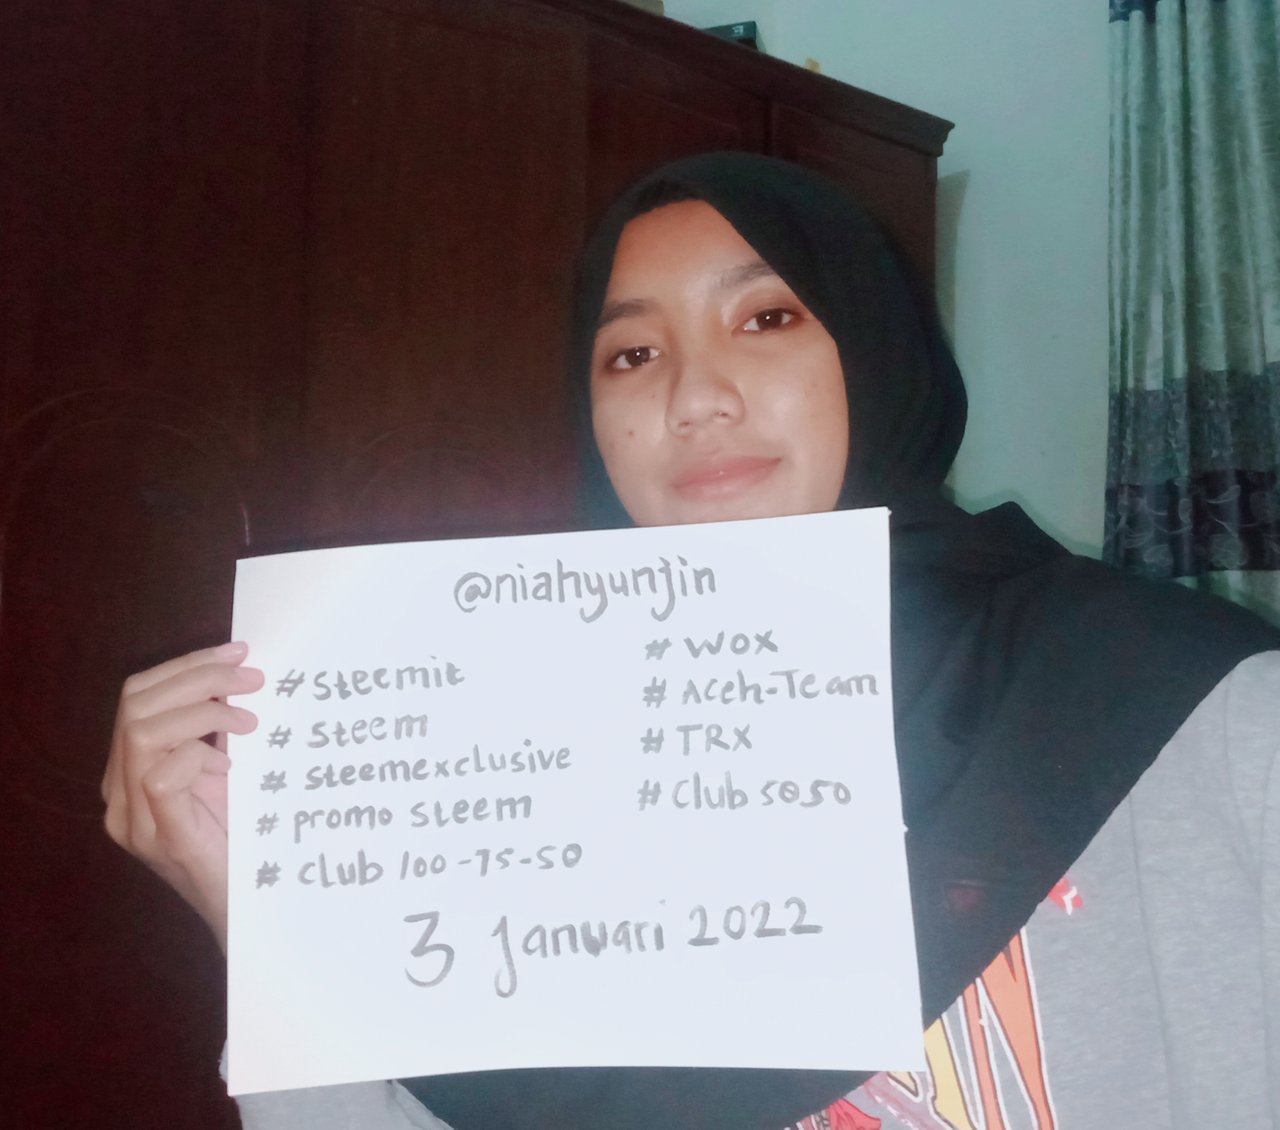 @niahyunjin
#steemit
# steem
# steemexclusive
# promo steem
# club 100-75-50
# WOX
# Aceh-Team
# TRX
# Club 5050
3 Januari 2022